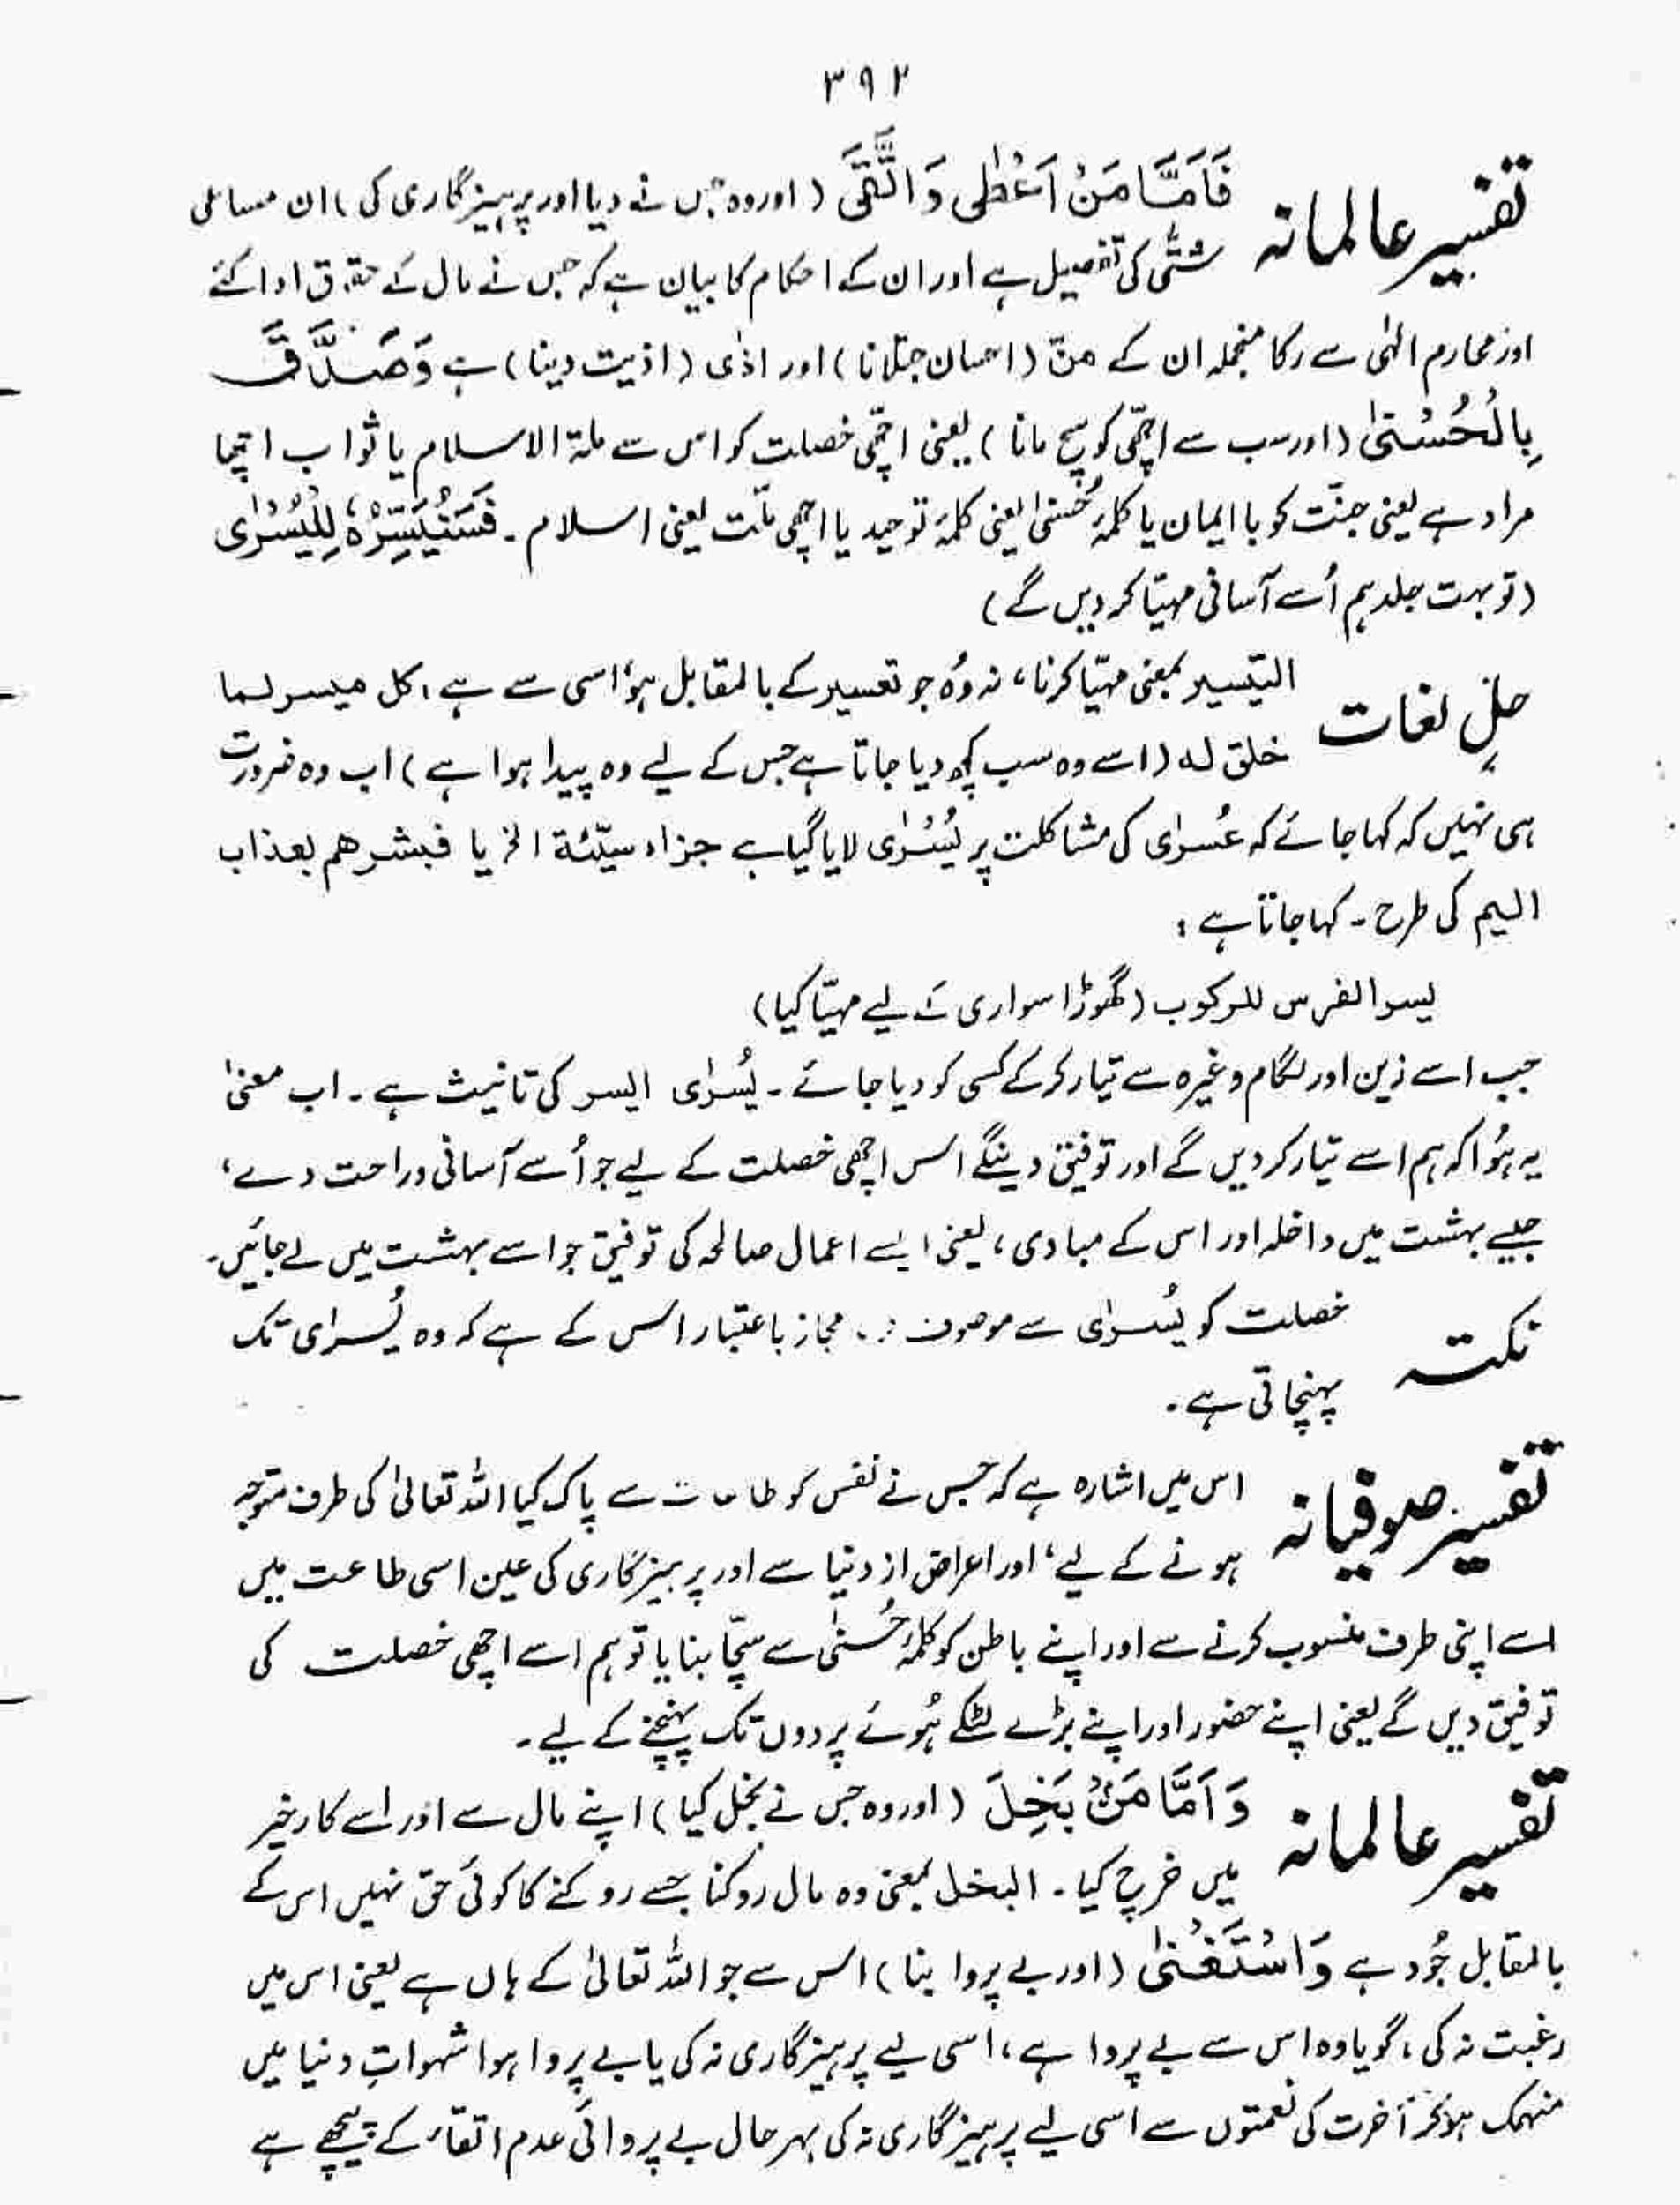 ۳۹۲
تفسیر عالمانہ فَاَمَّا مَنْ اَعْطٰی وَاتَّقٰی (اور وہ جس نے دیا اور پرہیزگاری کی) ان مساعی
شتّٰی کی تفصیل ہے اور ان کے احکام کا بیان ہے کہ جس نے مال کے حقوق ادا کئے
اور محارم الٰہی سے رکا منجملہ ان کے منّ (احسان جتلانا) اور اذٰی (اذیت دینا) ہے وَصَدَّقَ
بِالْحُسْنٰی (اور سب سے اچّھی کو سچ مانا) یعنی اچّھی خصلت کو اس سے ملۃ الاسلام یا ثواب اچھا
مراد ہے یعنی جنّت کو با ایمان یا کلمۂ حُسنٰی یعنی کلمۂ توحید یا اچھی ملّت یعنی اسلام۔ فَسَنُیَسِّرُہٗ لِلْیُسْرٰی
(تو بہت جلد ہم اُسے آسانی مہیّا کر دیں گے)
حلِّ لغات التیسیر بمعنی مہیّا کرنا، نہ وُہ جو تعسیر کے بالمقابل ہو اسی سے ہے، کل میسر لما
خلق لہ (اسے وہ سب کچھ دیا جاتا ہے جس کے لیے وہ پیدا ہوا ہے) اب وہ ضرورت
ہی نہیں کہ کہا جائے کہ عُسرٰی کی مشاکلت پر یُسْرٰی لایا گیا ہے جزاء سیّئۃ الخ یا فبشرھم بعذاب
الیم کی طرح۔ کہا جاتا ہے :
یسر الفرس للرکوب (گھوڑا سواری کے لیے مہیّا کیا)
جب اسے زین اور لگام وغیرہ سے تیار کر کے کسی کو دیا جائے۔ یُسرٰی ایسر کی تانیث ہے۔ اب معنیٰ
یہ ہُوا کہ ہم اسے تیار کر دیں گے اور توفیق دینگے اس اچھی خصلت کے لیے جو اُسے آسانی و راحت دے،
جیسے بہشت میں داخلہ اور اس کے مبادی، یعنی ایسے اعمال صالحہ کی توفیق جو اسے بہشت میں لے جائیں۔
نکتہ خصلت کو یُسرٰی سے موصوف مجاز باعتبار اس کے ہے کہ وہ یُسرٰی تک
پہنچاتی ہے۔
تفسیر صوفیانہ اس میں اشارہ ہے کہ جس نے نفس کو طاعات سے پاک کیا اللہ تعالیٰ کی طرف متوجہ
ہونے کے لیے، اور اعراض از دنیا سے اور پرہیزگاری کی عین اسی طاعت میں
اسے اپنی طرف منسوب کرنے سے اور اپنے باطن کو کلمۂ حُسنٰی سے سچّا بنایا تو ہم اسے اچھی خصلت کی
توفیق دیں گے یعنی اپنے حضور اور اپنے بڑے لٹکے ہُوئے پردوں تک پہنچنے کے لیے۔
تفسیر عالمانہ وَاَمَّا مَنْ بَخِلَ (اور وہ جس نے بخل کیا) اپنے مال سے اور اسے کار خیر
میں خرچ کیا۔ البخل بمعنی وہ مال روکنا جسے روکنے کا کوئی حق نہیں اس کے
بالمقابل جُود ہے وَاسْتَغْنٰی (اور بے پروا بنا) اس سے جو اللہ تعالیٰ کے ہاں ہے یعنی اس میں
رغبت نہ کی، گویا وہ اس سے بے پروا ہے، اسی لیے پرہیزگاری نہ کی یا بے پروا ہوا شہواتِ دنیا میں
منہمک ہو کر آخرت کی نعمتوں سے اسی لیے پرہیزگاری نہ کی بہر حال بے پروائی عدم اتقاء کے پیچھے ہے